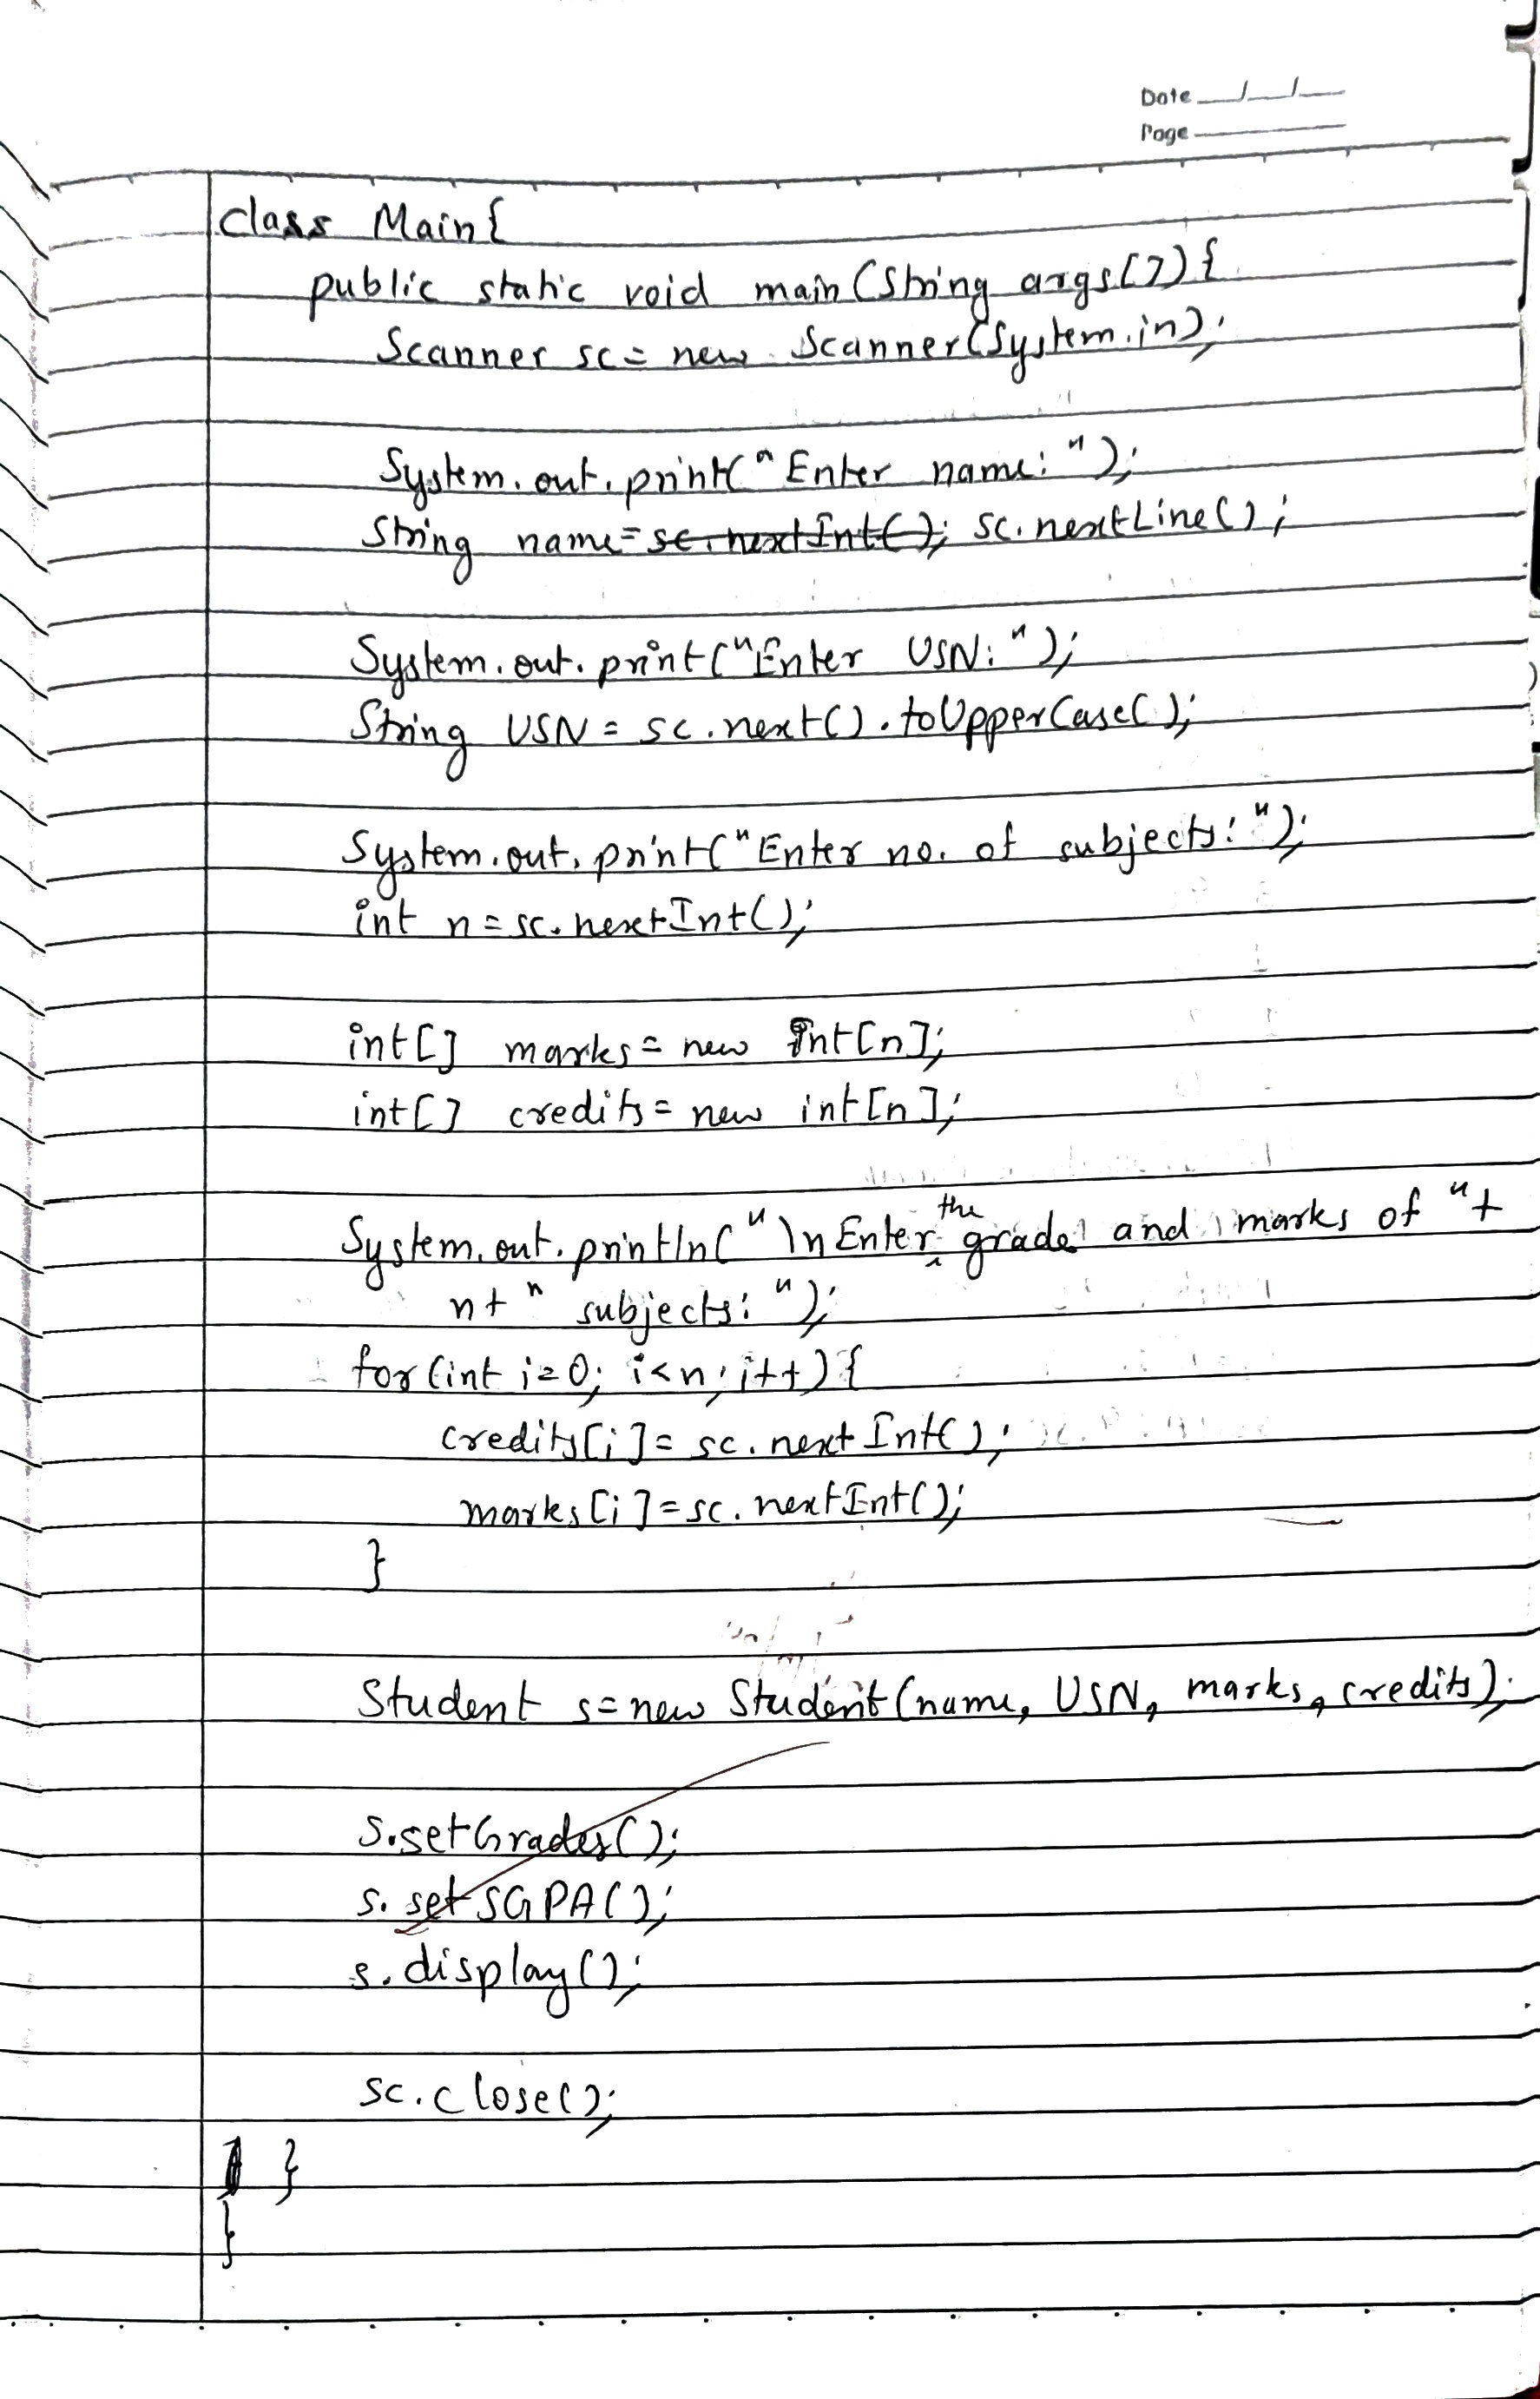 Date
Page
class Main{
public static void main(String args[]){
Scanner sc = new Scanner(System.in);
System.out.print("Enter name: ");
String name= sc.nextInt(); sc.nextLine();
System.out.print("Enter USN: ");
String USN = sc.next().toUpperCase();
System.out.print("Enter no. of subjects: ");
int n = sc.nextInt();
int[] marks = new int[n];
int[] credits = new int[n];
System.out.println("\nEnter the grade and marks of "+
n+ " subjects: ");
for(int i=0; i<n; i++){
credits[i] = sc.nextInt();
marks[i] = sc.nextInt();
}
Student s = new Student(name, USN, marks, credits);
s.setGrades();
s.setSGPA();
s.display();
sc.close();
}
}